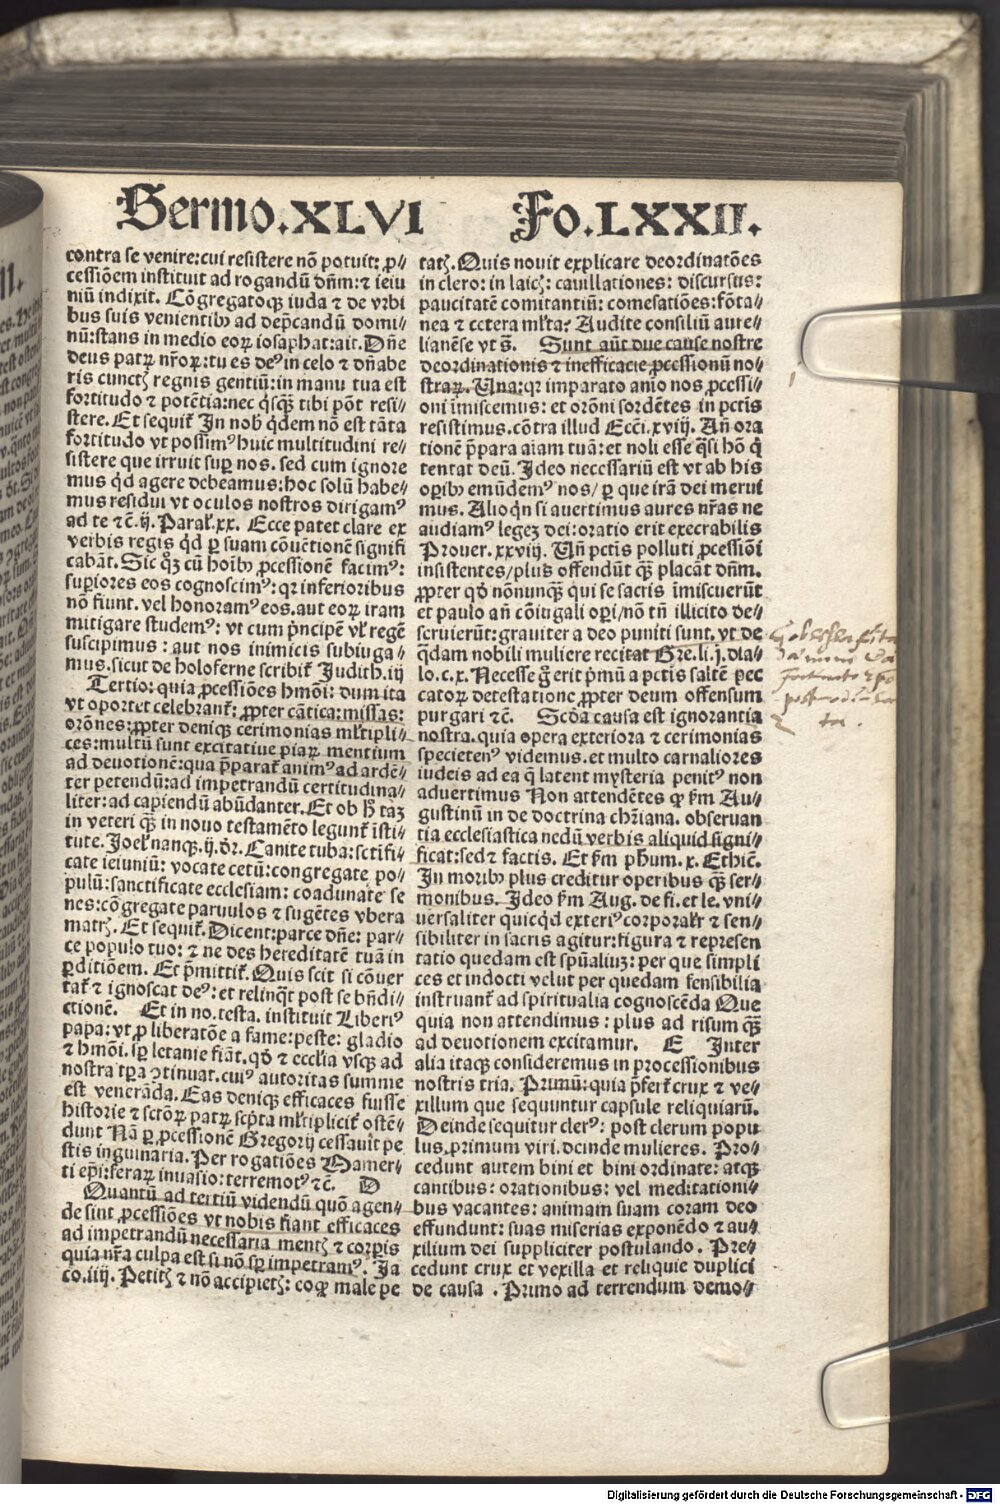 Sermo.XLVI Fo.LXXII.
contra se venire: cui resistere nõ potuit: ꝓ⸗
cessiõem instituit ad rogandũ dñm: ⁊ ieiu
niũ indixit. Cõgregatoqꝫ iuda ⁊ de vrbi
bus suis venientibꝰ ad dep̃candũ domi⸗
nũ: stans in medio eoꝝ iosaphat: ait. Dñe
deus patꝝ nr̃oꝝ: tu es deꝰ in celo ⁊ dñabe
ris cunctꝭ regnis gentiũ: in manu tua est
fortitudo ⁊ potẽtia: nec q̃sq̃ꝫ tibi põt resi⸗
stere. Et sequit᷑ In nob̃ q̇dem nõ est tãta
fortitudo vt possimꝰ huic multitudini re⸗
sistere que irruit suꝑ nos. sed cum ignore
mus q̇d agere debeamus: hoc solũ habe⸗
mus residui vt oculos nostros dirigamꝰ
ad te ⁊ c̃. ij. Paral̃. xx. Ecce patet clare ex
verbis regis q̇d ꝑ suam cõuẽtionẽ signifi
cabãt. Sic qꝫ cũ hoĩbꝰ ꝓcessionẽ facimꝰ:
suꝑiores eos cognoscimꝰ: qꝛ inferioribus
nõ fiunt. vel honoramꝰ eos. aut eoꝝ iram
mitigare studemꝰ: vt cum prĩcipẽ vl̃ regẽ
suscipimus: aut nos inimicis subiuga⸗
mus. sicut de holoferne scribit᷑ Judith. iij
Tertio: quia ꝓcessiões hmõi: dum ita
vt oportet celebrant᷑: ꝓpter cãtica: missas:
orõnes: ꝓpter deniqꝫ cerimonias ml̃tipli⸗
ces: multũ sunt excitatiue piaꝝ mentium
ad deuotionẽ: qua p̃parat᷑ animꝰ ad ardẽ⸗
ter petendũ: ad impetrandũ certitudina⸗
liter: ad capiendũ abũdanter. Et ob h̃ taꝫ
in veteri q̃ꝫ in nouo testamẽto legunt᷑ ĩsti⸗
tute. Joel̃ nanqꝫ. ij. dr̃. Canite tuba: sctifi⸗
cate ieiuniũ: vocate cetũ: congregate po⸗
pulũ: sanctificate ecclesiam: coadunate se
nes: cõgregate paruulos ⁊ sugẽtes vbera
matrꝭ. Et sequit᷑. Dicent: parce dñe: par⸗
ce populo tuo: ⁊ ne des hereditatẽ tuã in
ꝑditiõem. Et p̃mittit᷑. Quis scit si cõuer
tat᷑ ⁊ ignoscat deꝰ: et relinq̃t post se bñdi⸗
ctionẽ. Et in no. testa. instituit Liberiꝰ
papa: vt ꝓ liberatõe a fame: peste: gladio
⁊ hmõi. sꝑ letanie fiãt. qd̃ ⁊ eccl̃ia vsqꝫ ad
nostra tꝑa ↄtinuat. cuiꝰ autoritas summe
est venerãda. Eas deniqꝫ efficaces fuisse
historie ⁊ sctõꝝ patꝝ scp̃ta ml̃tiplicit᷑ ostẽ⸗
dunt Nã ꝑ ꝓcessionẽ Gregorij cessauit pe
stis inguinaria. Per rogatiões Mamer⸗
ti ep̃i: feraꝝ inuasio: terremotꝰ ⁊ c̃. D
Quantũ ad tertiũ videndũ quõ agen⸗
de sint ꝓcessiões vt nobis fiant efficaces
ad impetrandũ necessaria mentꝭ ⁊ corꝑis
quia nr̃a culpa est si nõ sꝑ impetramꝰ. Ja
co. iiij. Petitꝭ ⁊ nõ accipietꝭ: eo qꝫ male pe
tatꝭ. Quis nouit explicare deordinatões
in clero: in laicꝭ: cauillationes: discursus:
paucitatẽ comitantiũ: comesatiões: fõta⸗
nea ⁊ cetera ml̃ta? Audite consiliũ aure⸗
lianẽse vt ss̃. Sunt aũt due cause nostre
deordinationis ⁊ inefficacie ꝓcessionũ no⸗
straꝝ. Una: qꝛ imparato aĩo nos ꝓcessi⸗
oni ĩmiscemus: et orõni sordẽtes in pctĩs
resistimus. cõtra illud Ecci. xviij. Añ ora
tionẽ p̃para aĩam tuã: et noli esse q̃si hõ q̇
tentat deũ. Ideo necessariũ est vt ab his
oꝑibꝰ emũdemꝰ nos/ ꝑ que irã dei merui
mus. Alioq̇n si auertimus aures nr̃as ne
audiamꝰ legeꝫ dei: oratio erit execrabilis
Prouer. xxviij. Uñ pctĩs polluti ꝓcessiõi
insistentes/ plus offendũt q̃ꝫ placãt dñm.
ꝓpter qd̃ nõnunq̃ꝫ qui se sacris ĩmiscuerũt
et paulo añ cõiugali oꝑi/ nõ tñ illicito de⸗
seruierũt: grauiter a deo puniti sunt. vt de
q̃dam nobili muliere recitat Gre. li. j. dia⸗
lo. c. x. Necesse g̃ erit p̃mũ a pctĩs saltẽ pec
catoꝝ detestatione ꝓpter deum offensum
purgari ⁊ c̃. Scda causa est ignorantia
nostra. quia opera exteriora ⁊ cerimonias
specietenꝰ videmus. et multo carnaliores
iudeis ad ea q̃ latent mysteria penitꝰ non
aduertimus Non attendẽtes qꝫ s̃m Au⸗
gustinũ in de doctrina chr̃iana. obseruan
tia ecclesiastica nedũ verbis aliquid signi⸗
ficat: sed ⁊ factis. Et s̃m phũm. x. Ethic̃.
In moribꝰ plus creditur operibus q̃ꝫ ser⸗
monibus. Ideo s̃m Aug. de fi. et le. vni⸗
uersaliter quicq̇d exteriꝰ corporalr̃ ⁊ sen⸗
sibiliter in sacris agitur: figura ⁊ represen
tatio quedam est spũaliuꝫ: per que simpli
ces et indocti velut per quedam sensibilia
instruant᷑ ad spiritualia cognoscẽda Que
quia non attendimus: plus ad risum q̃ꝫ
ad deuotionem excitamur. E Inter
alia itaqꝫ consideremus in processionibus
nostris tria. Primũ: quia p̃fert᷑ crux ⁊ ve⸗
xillum que sequuntur capsule reliquiarũ.
Deinde sequitur clerꝰ: post clerum popu
lus. primum viri. deinde mulieres. Pro⸗
cedunt autem bini et bini ordinate: atqꝫ
cantibus: orationibus: vel meditationi⸗
bus vacantes: animam suam coram deo
effundunt: suas miserias exponẽdo ⁊ au⸗
xilium dei suppliciter postulando. Pre⸗
cedunt crux et vexilla et reliquie duplici
de causa. Primo ad terrendum demo⸗
Digitalisierung gefördert durch die Deutsche Forschungsgemeinschaft - DFG